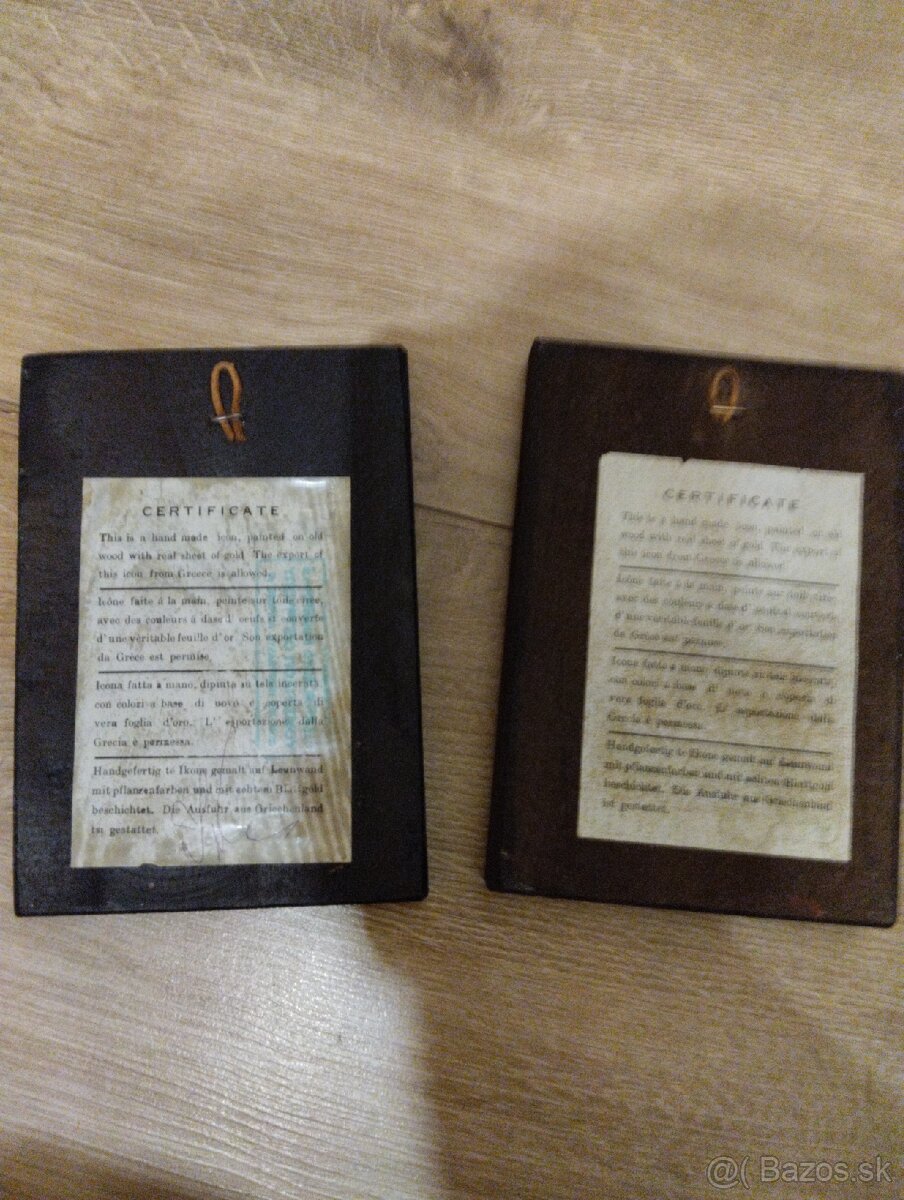 CERTIFICATE
This is a hand made icon, painted on old
wood with real sheet of gold. The export of
this icon from Greece is allowed.
Icône faite á la main, peinte sur toile cirée,
avec des couleurs á dase d' oeufs et couverte
d' une véritable feuille d' or. Son exportation
da Grèce est permise.
Icona fatta a mano, dipinta su tela incerata,
con colori a base di uovo e coperta di
vera foglia d'oro. L' esportazione dalla
Grecia è permessa.
Handgefertig te Ikone gemalt auf Leinwand
mit pflanzenfarben und mit echtem Blattgold
beschichtet. Die Ausfuhr aus Griechenland
ist gestattet.
CERTIFICATE
This is a hand made icon, painted on old
wood with real sheet of gold. The export of
this icon from Greece is allowed.
Icône faite á la main, peinte sur toile cirée,
avec des couleurs a dase d'
d' une véritable feuille d' or. Son exportation
da Grèce est permise.
Icona fatta a mano, dipinta su tela incerata,
con colori a base di uova e coperta di
vera foglia d'oro. L' esportazione dalla
Grecia è permessa.
Handgefertig te Ikone gemalt auf Leinwand
mit pflanzenfarben und mit echtem Blattgold
beschichtet. Die Ausfuhr aus Griechenland
ist gestattet.
@( Bazos.sk